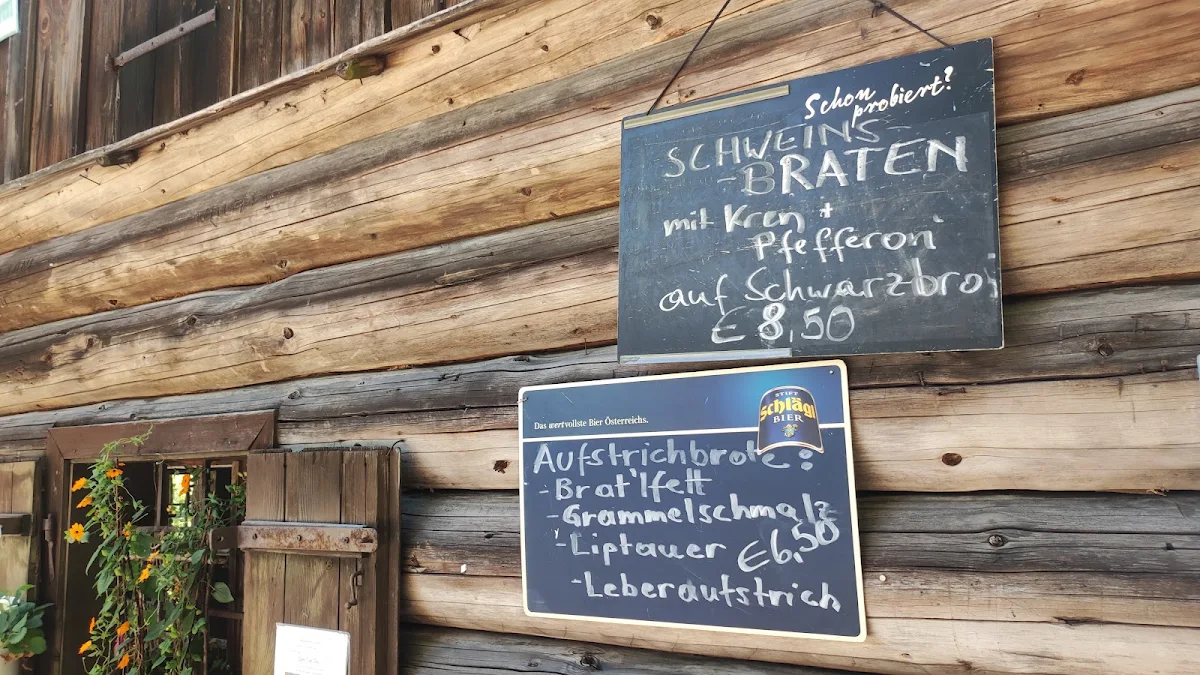 Schon
probiert?
SCHWEINS-
-BRATEN
mit Kren +
Pfefferoni
auf Schwarzbrot
€ 8,50
Das wertvollste Bier Österreichs.
STIFT
Schlägl
BIER
Aufstrichbrote:
- Brat'lfett
- Grammelschmalz
- Liptauer €6,50
- Leberaufstrich